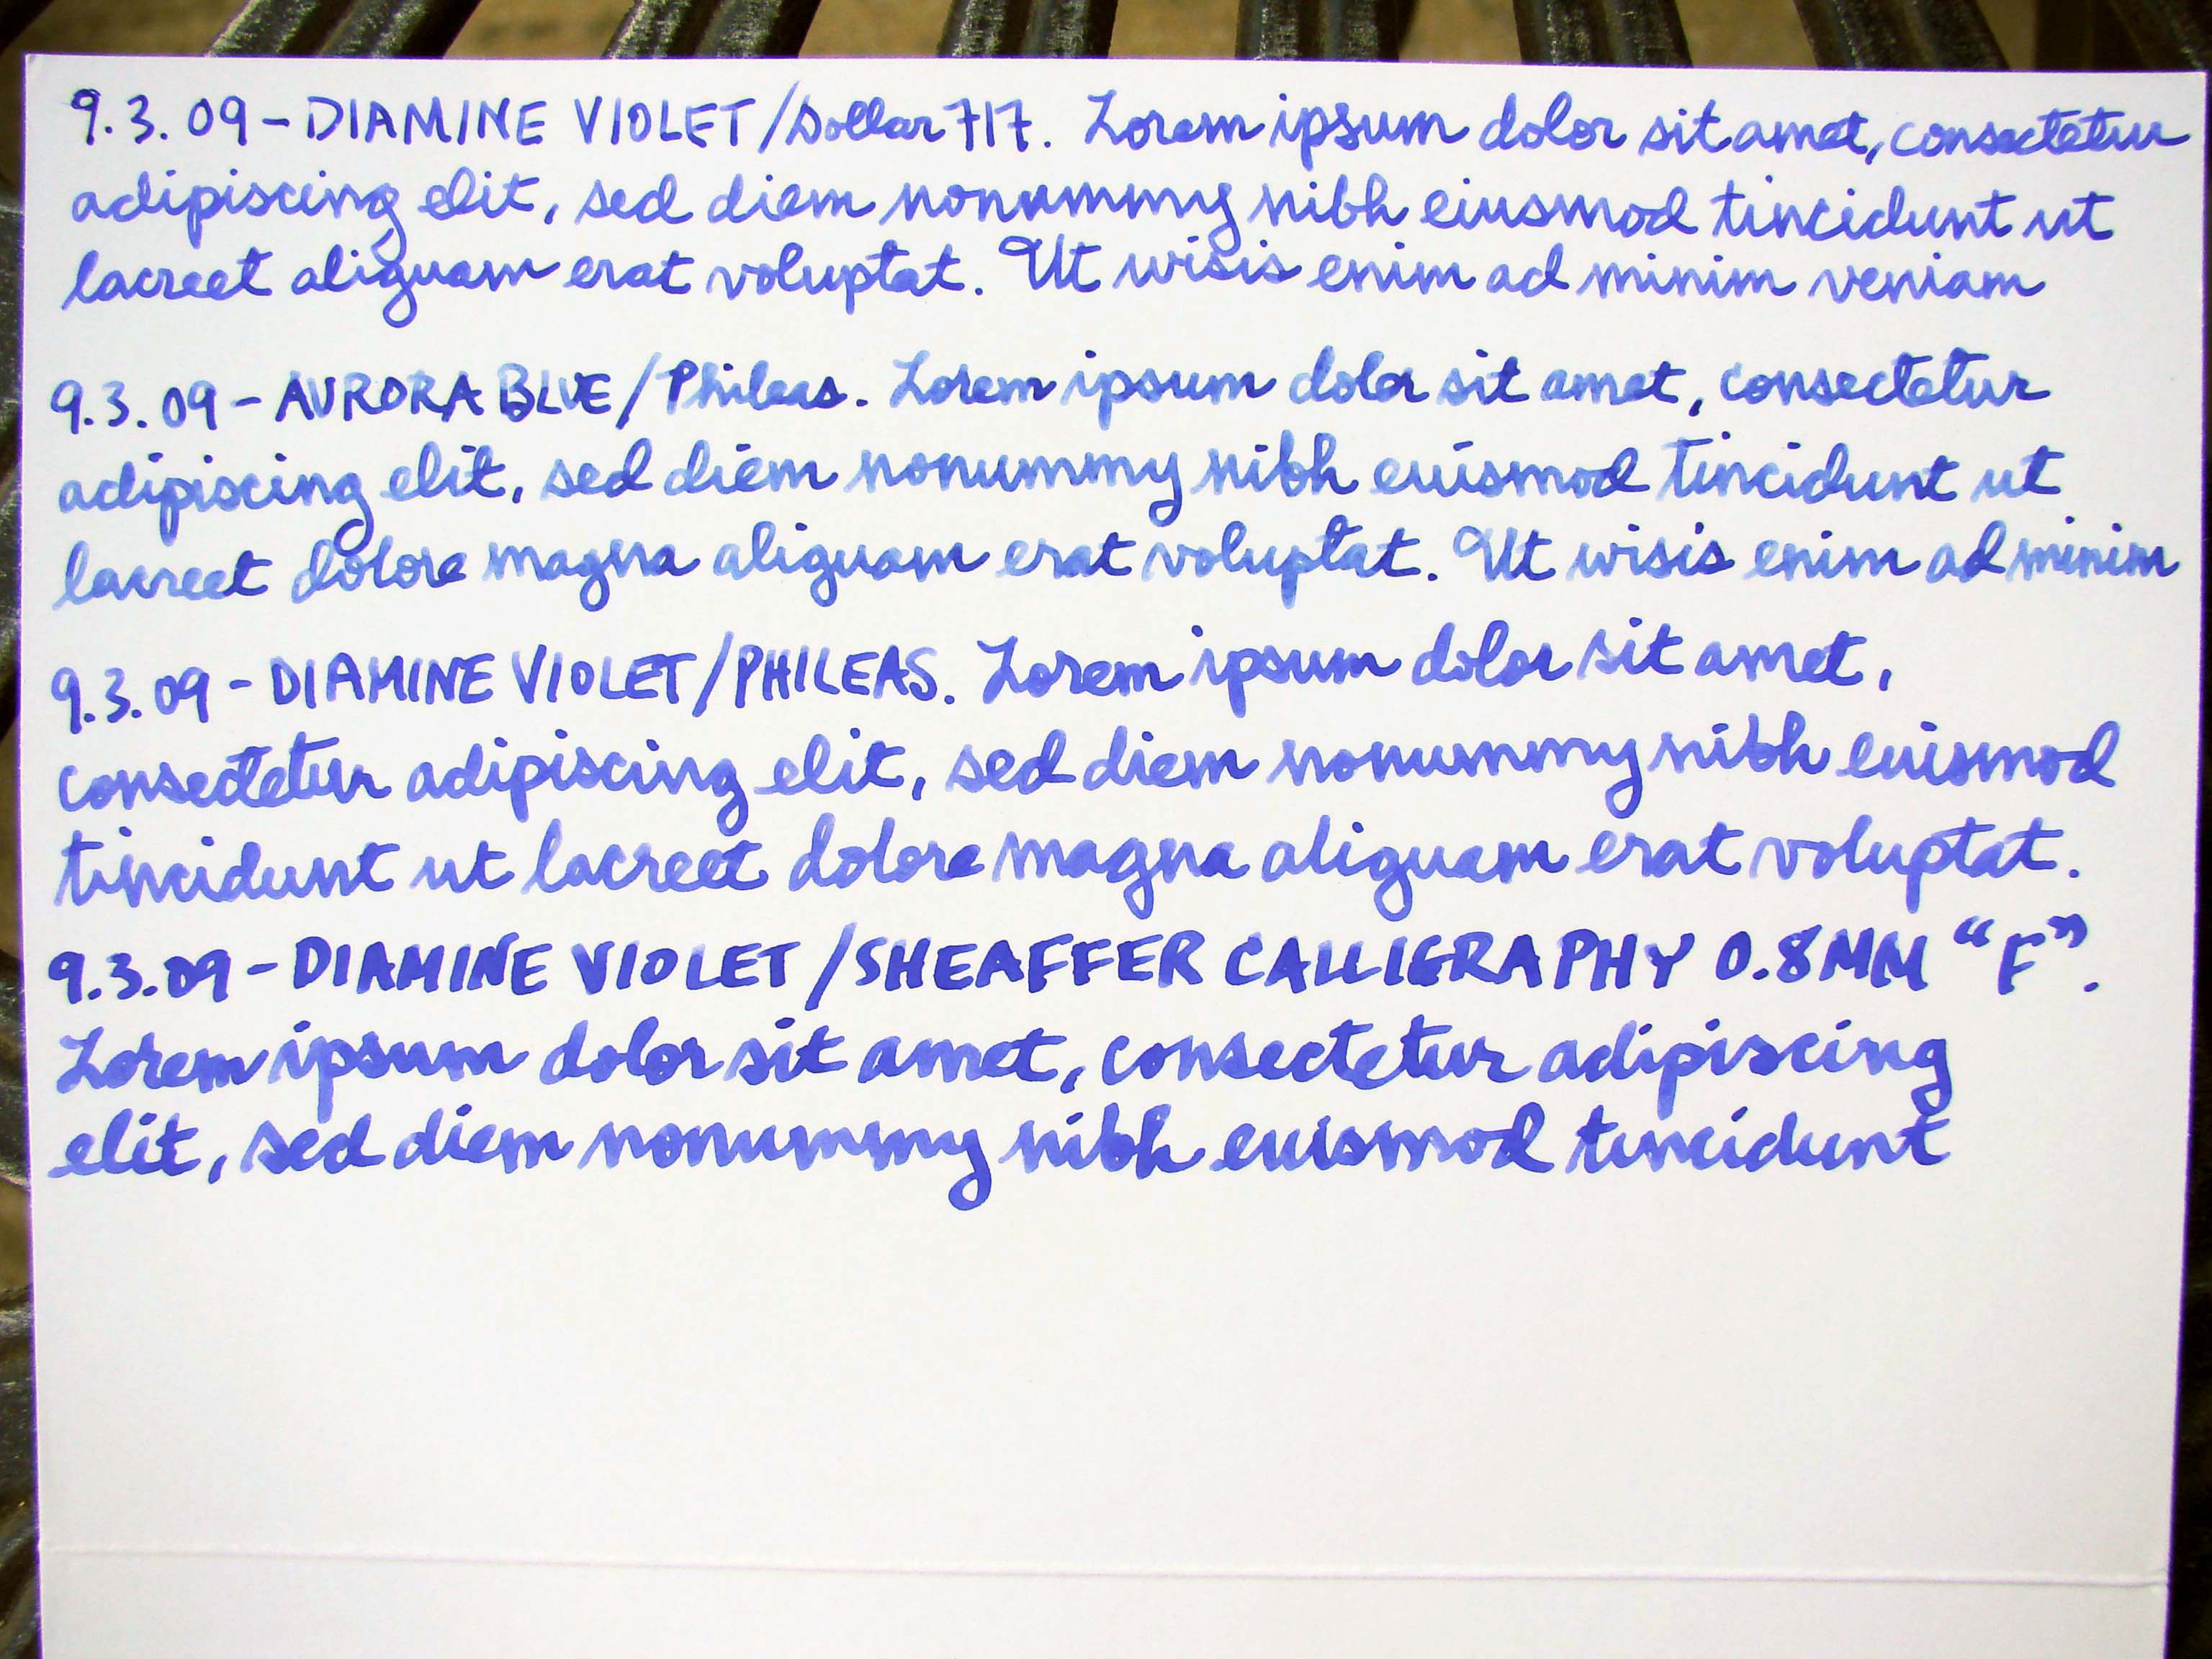 9.3.09-DIAMINE VIOLET/Dollar 717. Lorem ipsum dolor sit amet, consectetur
adipiscing elit, sed diem nonummy nibh eiusmod tincidunt ut
lacreet aliquam erat voluptat. Ut wisis enim ad minim veniam
9.3.09-AURORA BLUE/Phileas. Lorem ipsum dolor sit amet, consectetur
adipiscing elit, sed diem nonummy nibh euismod tincidunt ut
lacreet dolore magna aliquam erat voluptat. Ut wisis enim ad minim
9.3.09-DIAMINE VIOLET/PHILEAS. Lorem ipsum dolor sit amet,
consectetur adipiscing elit, sed diem nonummy nibh euismod
tincidunt ut lacreet dolore magna aliquam erat voluptat.
9.3.09-DIAMINE VIOLET/SHEAFFER CALLIGRAPHY 0.8MM “F”.
Lorem ipsum dolor sit amet, consectetur adipiscing
elit, sed diem nonummy nibh euismod tincidunt